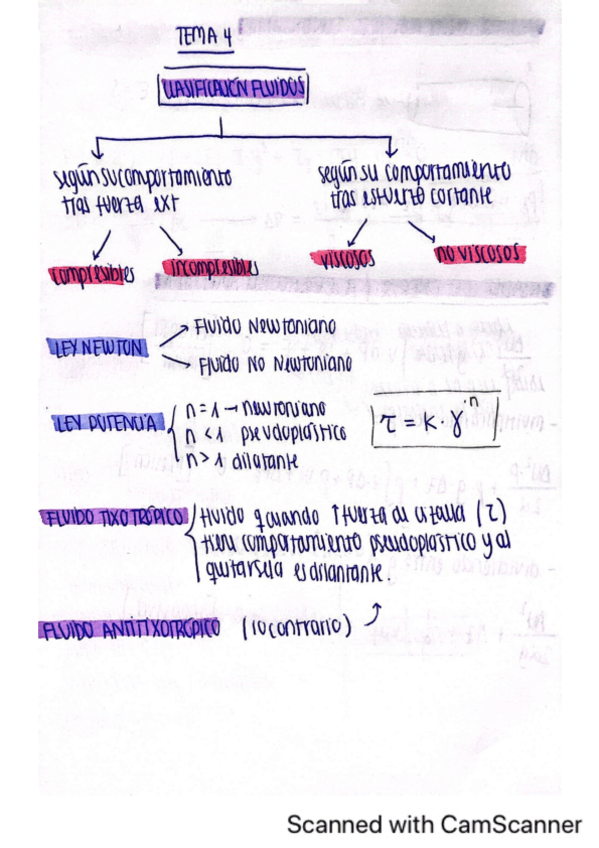 TEMA 4
CLASIFICACIÓN FLUIDOS
según su comportamiento
tras fuerza ext
según su comportamiento
tras esfuerzo cortante
compresibles
incompresibles
viscosos
no viscosos
LEY NEWTON
Fluido Newtoniano
Fluido No Newtoniano
LEY POTENCIA
n = 1 → newtoniano
n < 1 pseudoplástico
n > 1 dilatante
τ = K · γ̇ⁿ
FLUIDO TIXOTRÓPICO
fluido q cuando ↑ fuerza de cizalla (τ)
tiene comportamiento pseudoplástico y al
quitarsela es dilantante.
FLUIDO ANTITIXOTRÓPICO (lo contrario)
Scanned with CamScanner